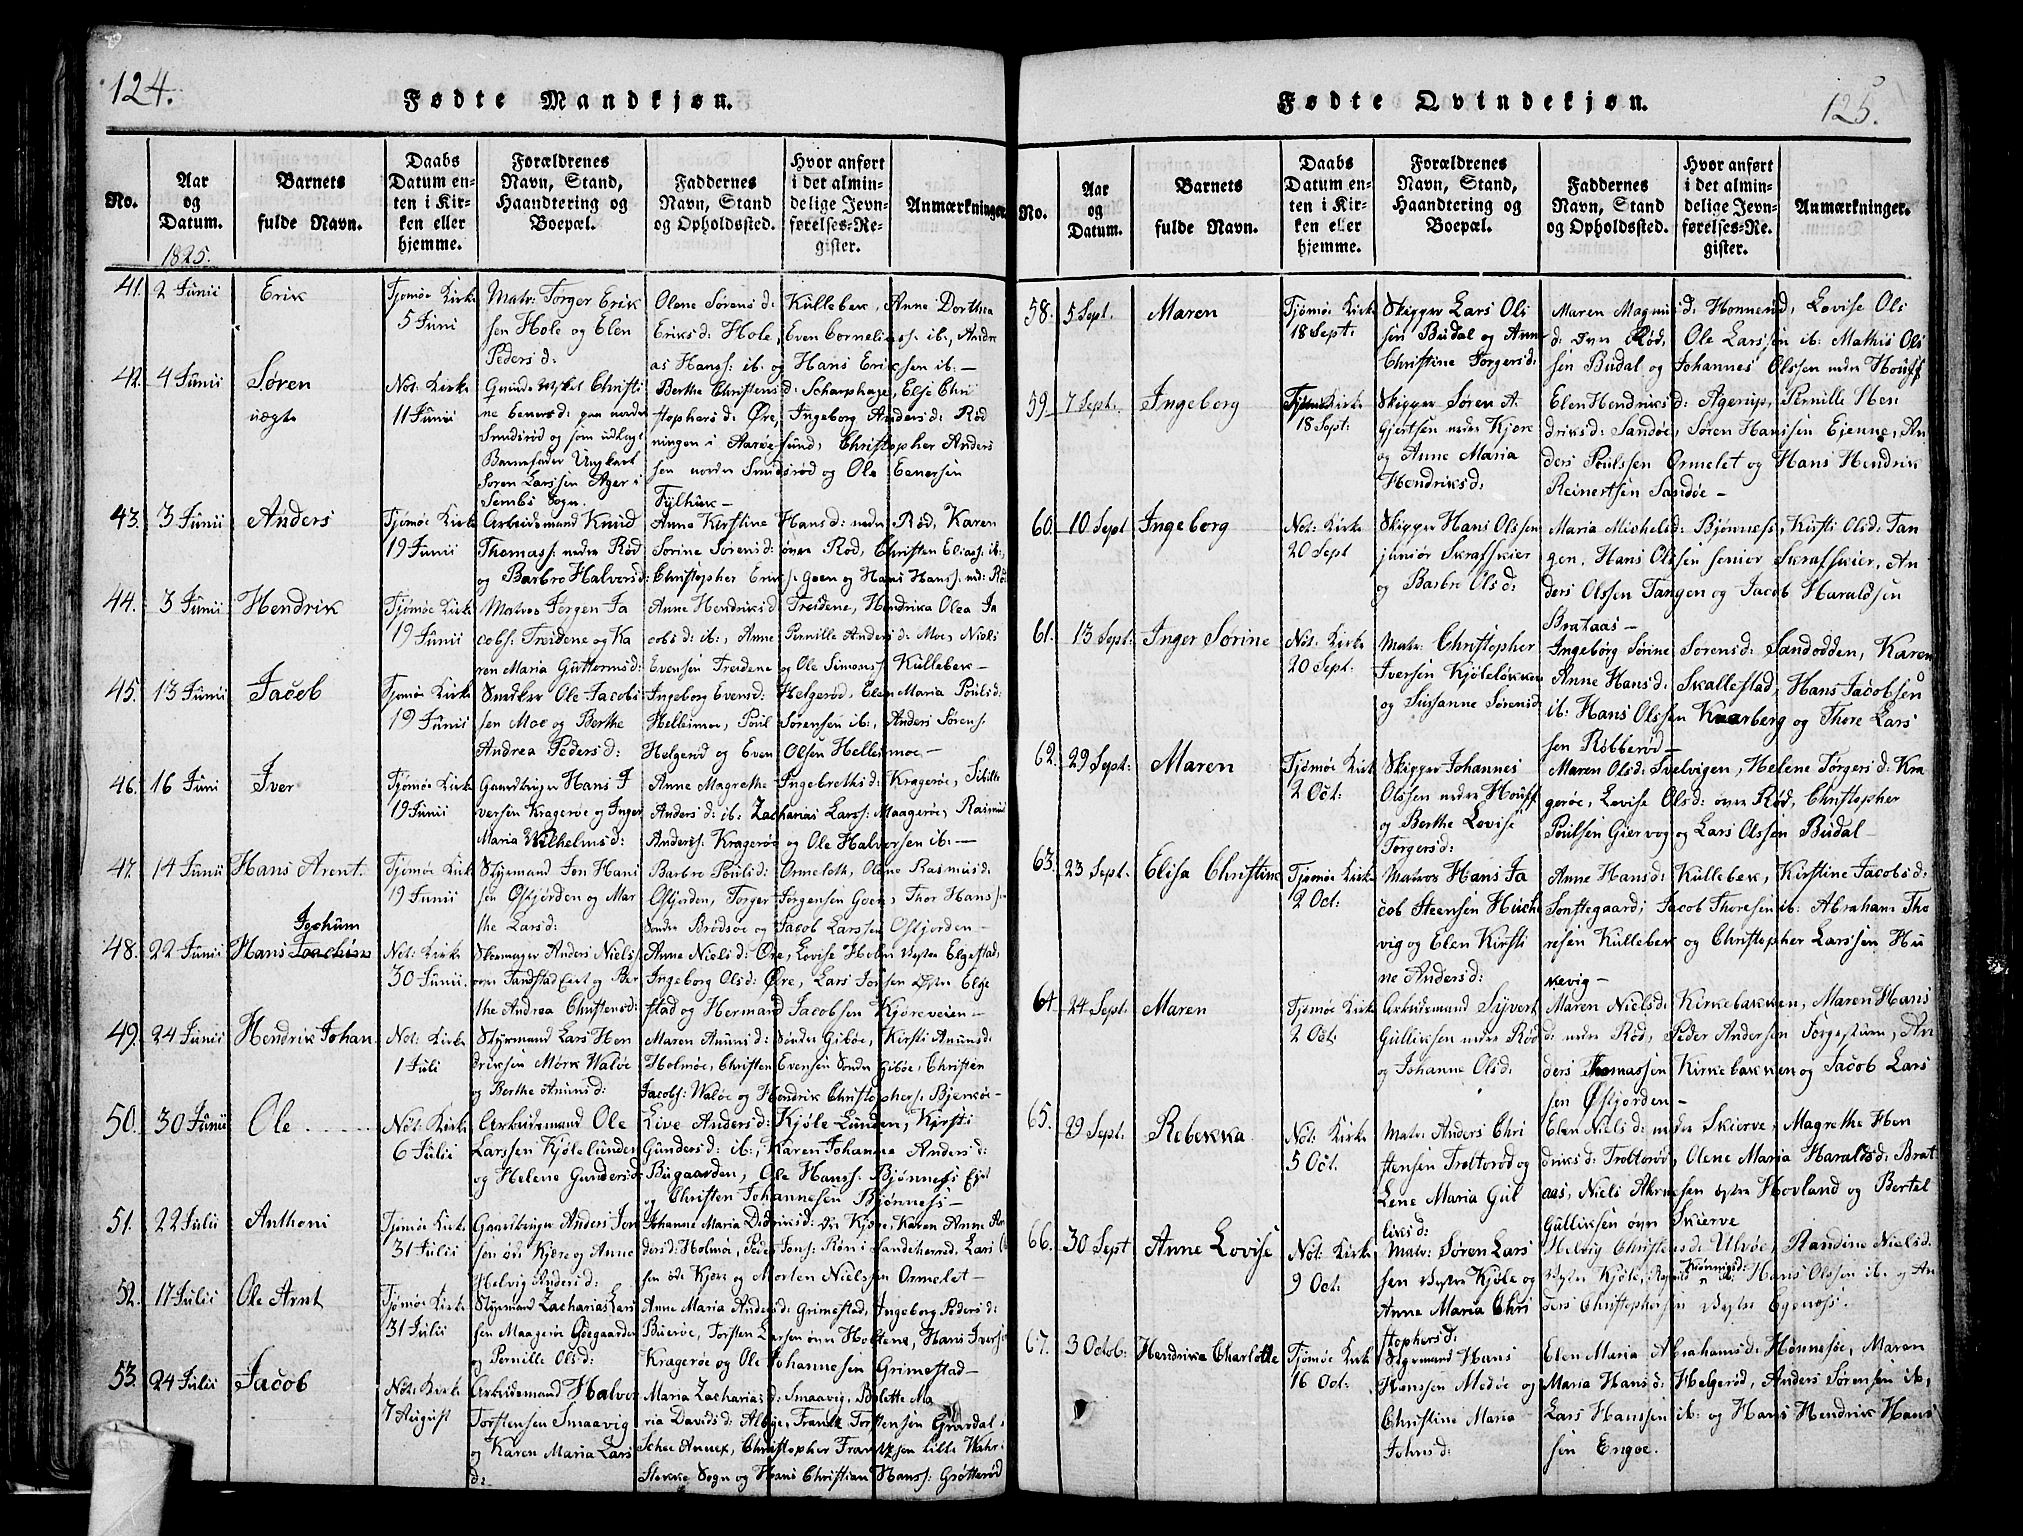 124.
Fødte Mandkjøn.
No.
Aar
og
Datum.
Barnets
fulde Navn.
Daabs
Datum en-
ten i Kir-
ken eller
hjemme.
Forældrenes
Navn, Stand,
Haandtering og
Boepæl.
Faddernes
Navn, Stand
og Opholdssted.
Hvor anført
i det almin-
delige Jevn-
førelses-Re-
gister.
Anmærkninger
1825.
41. 2 Junii
Erik
Tjømøe Kirke
5 Juni
Matr: Torger Erik
sen Hole og Elen
Peders d:
Olene Sørens d: Kullebek, Anne Dorthea
Eriks d: Hole, Even Cornelius s. ib:, Andre
as Hans s: ib: og Hans Eriksen ib: —
42. 4 Junii
Søren
uægte
Not: Kirke
11 Junii
Qvindemsket Christi
ne Eeners d: paa nordre
Smidsrød og som udlagt
Barnefader Ungkarl
Søren Larssen Ager i
Sembs Sogn.
Berthe Christens d: Scharphage, Else Chri
stophers d: Øre, Ingeborg Anders d: Rød
ningen i Aarøesund, Christopher Anders
sen nordre Smidsrød og Ole Eenersen
43. 3 Junii
Anders
Tjømøe Kirke
19 Junii
Arbeidsmand Knud
Thomas s: nedre Rød
og Barbro Halvors d:
Anne Kirstine Hans d: nedre Rød, Karen
Sorine Sørens d: øvre Rød, Christen Elias s: ib:,
Christopher Erik s. Goen og Hans Hans s: ned: Rø
44. 3 Junii
Hendrik
Tjømøe Kirke
19 Junii
Matros Jørgen Ja
cobs: Treidene og Ka
ren Maria Guttorms d:
Anne Hendriks d: Treidene, Hendrika Olea Ja
cobs d: ib:, Anne Pernille Anders d: Moe, Niels
Evensen Treidene og Ole Simons s: Kullebek —
45. 13 Junii
Jacob
Tjømøe Kirke
19 Junii
Snedker Ole Jacob
sen Moe og Berthe
Andrea Peders d:
Ingeborg Evens d: Helgerød, Elen Maria Pouls d:
Hellesmoe, Poul Sørensen ib:, Anders Sørens:
Helgerød og Even Olsen Hellesmoe —
46. 16 Juni
Iver
Tjømøe Kirke
19 Junii
Gaardbruger Hans I
versen Kragerøe og Inger
Maria Wilhelms d:
Anne Magrethe Ingebreths d: Kragerøe,
Anders d: ib: Zacharias Lars s: Maagerøe, Rasmus
Anders: Kragerøe og Ole Halversen ib: —
47. 14 Junii
Hans Arent
Tjømøe Kirke
19 Junii
Styrmand Jon Hans
sen Ostjorden og Mar
the Lars d:
Barbro Pouls d: Ormeleth, Olene Rasmus d:
Ostjorden, Torger Jørgensen Goen, Thor Hans s:
Søndre Brødsøe og Jacob Larsen Ostjorden —
48. 22 Junii
Jochum
Hans Joachim
Not: Kirke
30 Junii
Skomager Anders Niels s:
the Andrea Christens d:
Anne Niels d: Øre, Lovise Holm vestre Elgestad,
Ingeborg Ols d: Øre, Lars Torsen østre Elge
stad og Hermand Jacobsen Kjøreveien —
49. 24 Junii
Hendrik Johan
Not: Kirke
1 Juli
Styrmand Lars Hen
driksen Mørk Waløe
og Berthe Anuns d:
Maren Anuns d: Søndre Gibøe, Kirsti Anuns d:
Holmøe, Christen Evensen Søndre Gibøe, Christen
Jacobs: Waløe og Hendrik Christophers: Bjerkøe —
50. 30 Junii
Ole
Not: Kirke
6 Julii
Arbeidsmand Ole
Larssen Kjøle Lunden
og Helene Gunders d:
Live Anders d: Kjøle Lunden, Kirsti
Gunders d: ib:, Karen Johanne Anders d:
Bugaarden, Ole Hans s: Bjønnes Eiet
og Christen Johannesen Bjønnes —
51. 22 Julii
Anthoni
Tjømøe Kirke
31 Julii
Gaardbruger Anders Jon
sen øde Kjøre og Anne
Helvig Anders d:
Johanne Maria Didriks d: øde Kjøre, Karen Anne An
ders d: Holmøe, Peder Jons: Røn i Sandeherred, Lars
sen øde Kjøre og Morten Nielssen Ormelet —
52. 17 Julii
Ole Arnt
Tjømøe Kirke
31 Julii
Styrmand Zacharias Lars
sen Maagerøe Goegaarden
og Pernille Ols d:
Anne Maria Anders d: Grimestad, Ingeborg Peders d:
Buerøe, Torsten Larsen øvre Holtene, Hans Iversen
Kragerøe og Ole Johannesen Grimestad —
53. 24 Julii
Jacob
Not: Kirke
7 August
Arbeidsmand Halvor
Torstensen Smaavig
og Karen Maria Lars
d:
Maria Zacharias d: Smaavig, Bolette Ma
ria Davids d: Albye, Frantz Torstensen Grardal
Schee Annex, Christopher Frantzsen lille Wahr
Stokke Sogn og Hans Christian Hans s: Grøtterød
125.
Fødte Qvindekjøn.
No.
Aar
og
Datum.
Barnets
fulde Navn.
Daabs
Datum en-
ten i Kir-
ken eller
hjemme.
Forældrenes
Navn, Stand,
Haandtering og
Boepæl.
Faddernes
Navn, Stand
og Opholdssted.
Hvor anført
i det almin-
delige Jevn-
førelses-Re-
gister.
Anmærkninger.
58. 5 Sept.
Maren
Tjømøe Kirke
18 Sept:
Skipper Lars Ols
sen Budal og Anne
Christine Torgers d:
Maren Magnus d: Honnerød, Lovise Ols
d: øvre Rød, Ole Larssen ib: Mathis Ols
sen Budal og Johannes Olssen nedre Houff
59. 7 Sept.
Ingeborg
Tjømøe Kirke
18 Sept:
Skipper Søren A.
Gjertsen nedre Kjøre
og Anne Maria
Hendriks d:
Elen Hendriks d: Agerup, Pernille Hen
driks d: Sandøe, Søren Hanssen Ejenne, An
ders Poulssen Ormelet og Hans Hendrik
Reinertsen Sandøe —
60. 10 Sept
Ingeborg
Not: Kirke
20 Sept
Skipper Hans Olssen
junior Skrafskier
og Barbro Ols d:
Maria Michels d: Bjønnes, Kirsti Ols d: Tan
gen, Hans Olssen senior Skrafskier, An
ders Olssen Tangen og Jacob Haraldsen
Brataas —
61. 13 Sept:
Inger Sorine
Not: Kirke
20 Sept.
Matr: Christopher
Iversen Kjøleløkken
og Susanne Sørens d:
Ingeborg Sorine Sørens d: Sandodden, Karen
Anne Hans d: Skallestad, Hans Jacobsen
ib: Hans Olssen Knarberg og Thore Lars
sen Robberød —
62. 29 Sept:
Maren
Tjømøe Kirke
2 Oct:
Skipper Johannes
Olssen nedre Houff
og Berthe Lovise
Torgers d:
Maren Ols d: Svelvigen, Helene Torgers d: Kra
gerøe, Lovise Ols d: øvre Rød, Christopher
Poulsen Giervog og Lars Olssen Budal —
63. 23 Sept.
Elisa Christine
Tjømøe Kirke
2 Oct:
Matros Hans Ja
cob Steensen Huche
vig og Elen Kirsti
ne Anders d:
Anne Hans d: Kullebek, Kirstine Jacobs d:
Tonstegaard, Jacob Thoresen ib: Abraham Tho
resen Kullebek og Christopher Larssen Hu
kevig —
64. 24 Sept:
Maren
Tjømøe Kirke
2 Oct:
Arbeidsmand Syvert
Gulliksen nedre Rød
og Johanne Ols d:
Maren Niels d: Kirkebakken, Maren Hans
d: nedre Rød, Peder Andersen Torgestuen, An
ders Thomassen Kirkebakken og Jacob Lars
sen Østjorden —
65. 29 Sept.
Rebekka
Not: Kirke
5 Oct.
Matr: Anders Chri
stensen Trobtorød og
Lene Maria Gul
liks d:
Elen Niels d: nedre Skierve, Magrethe Hen
driks d: Trobtorød, Olene Maria Haralds d: Brat
aas, Niels Abrahamsen østre Hovland og Bertel
Gulliksen øvre Skierve
66. 30 Sept
Anne Lovise
Not: Kirke
9 Oct:
Matr: Søren Lars
sen vestre Kjøle og
Anne Maria Chri
stophers d:
Helvig Christens d: Ulvøe, Randine Niels d:
Vestre Kjøle, ib: Hans Olssen ib: og An
ders Christophersen Vestre Egenæs.
67. 3 Octob:
Hendrika Charlotte
Tjømøe Kirke
16 Oct:
Styrmand Hans
Hanssen Medøe og
Christine Maria
Johns d:
Elen Maria Abrahams d: Hønnesøe, Maren
Maria Hans d: Helgerød, Anders Sørensen ib:,
Lars Hanssen ib: og Hans Hendrik Hans
sen Engøe.